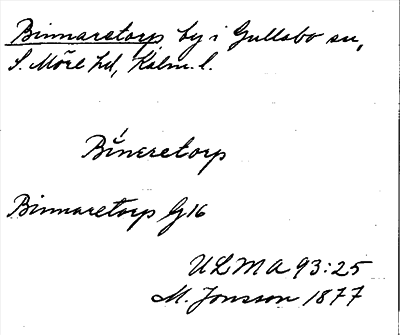 Binnaretorp by i Gullabo sn,
S. Möre hd, Kalm. l.
Bĭ́neretorp
Binnaretorp G16
ULMA 93:25
M. Jonsson 1877